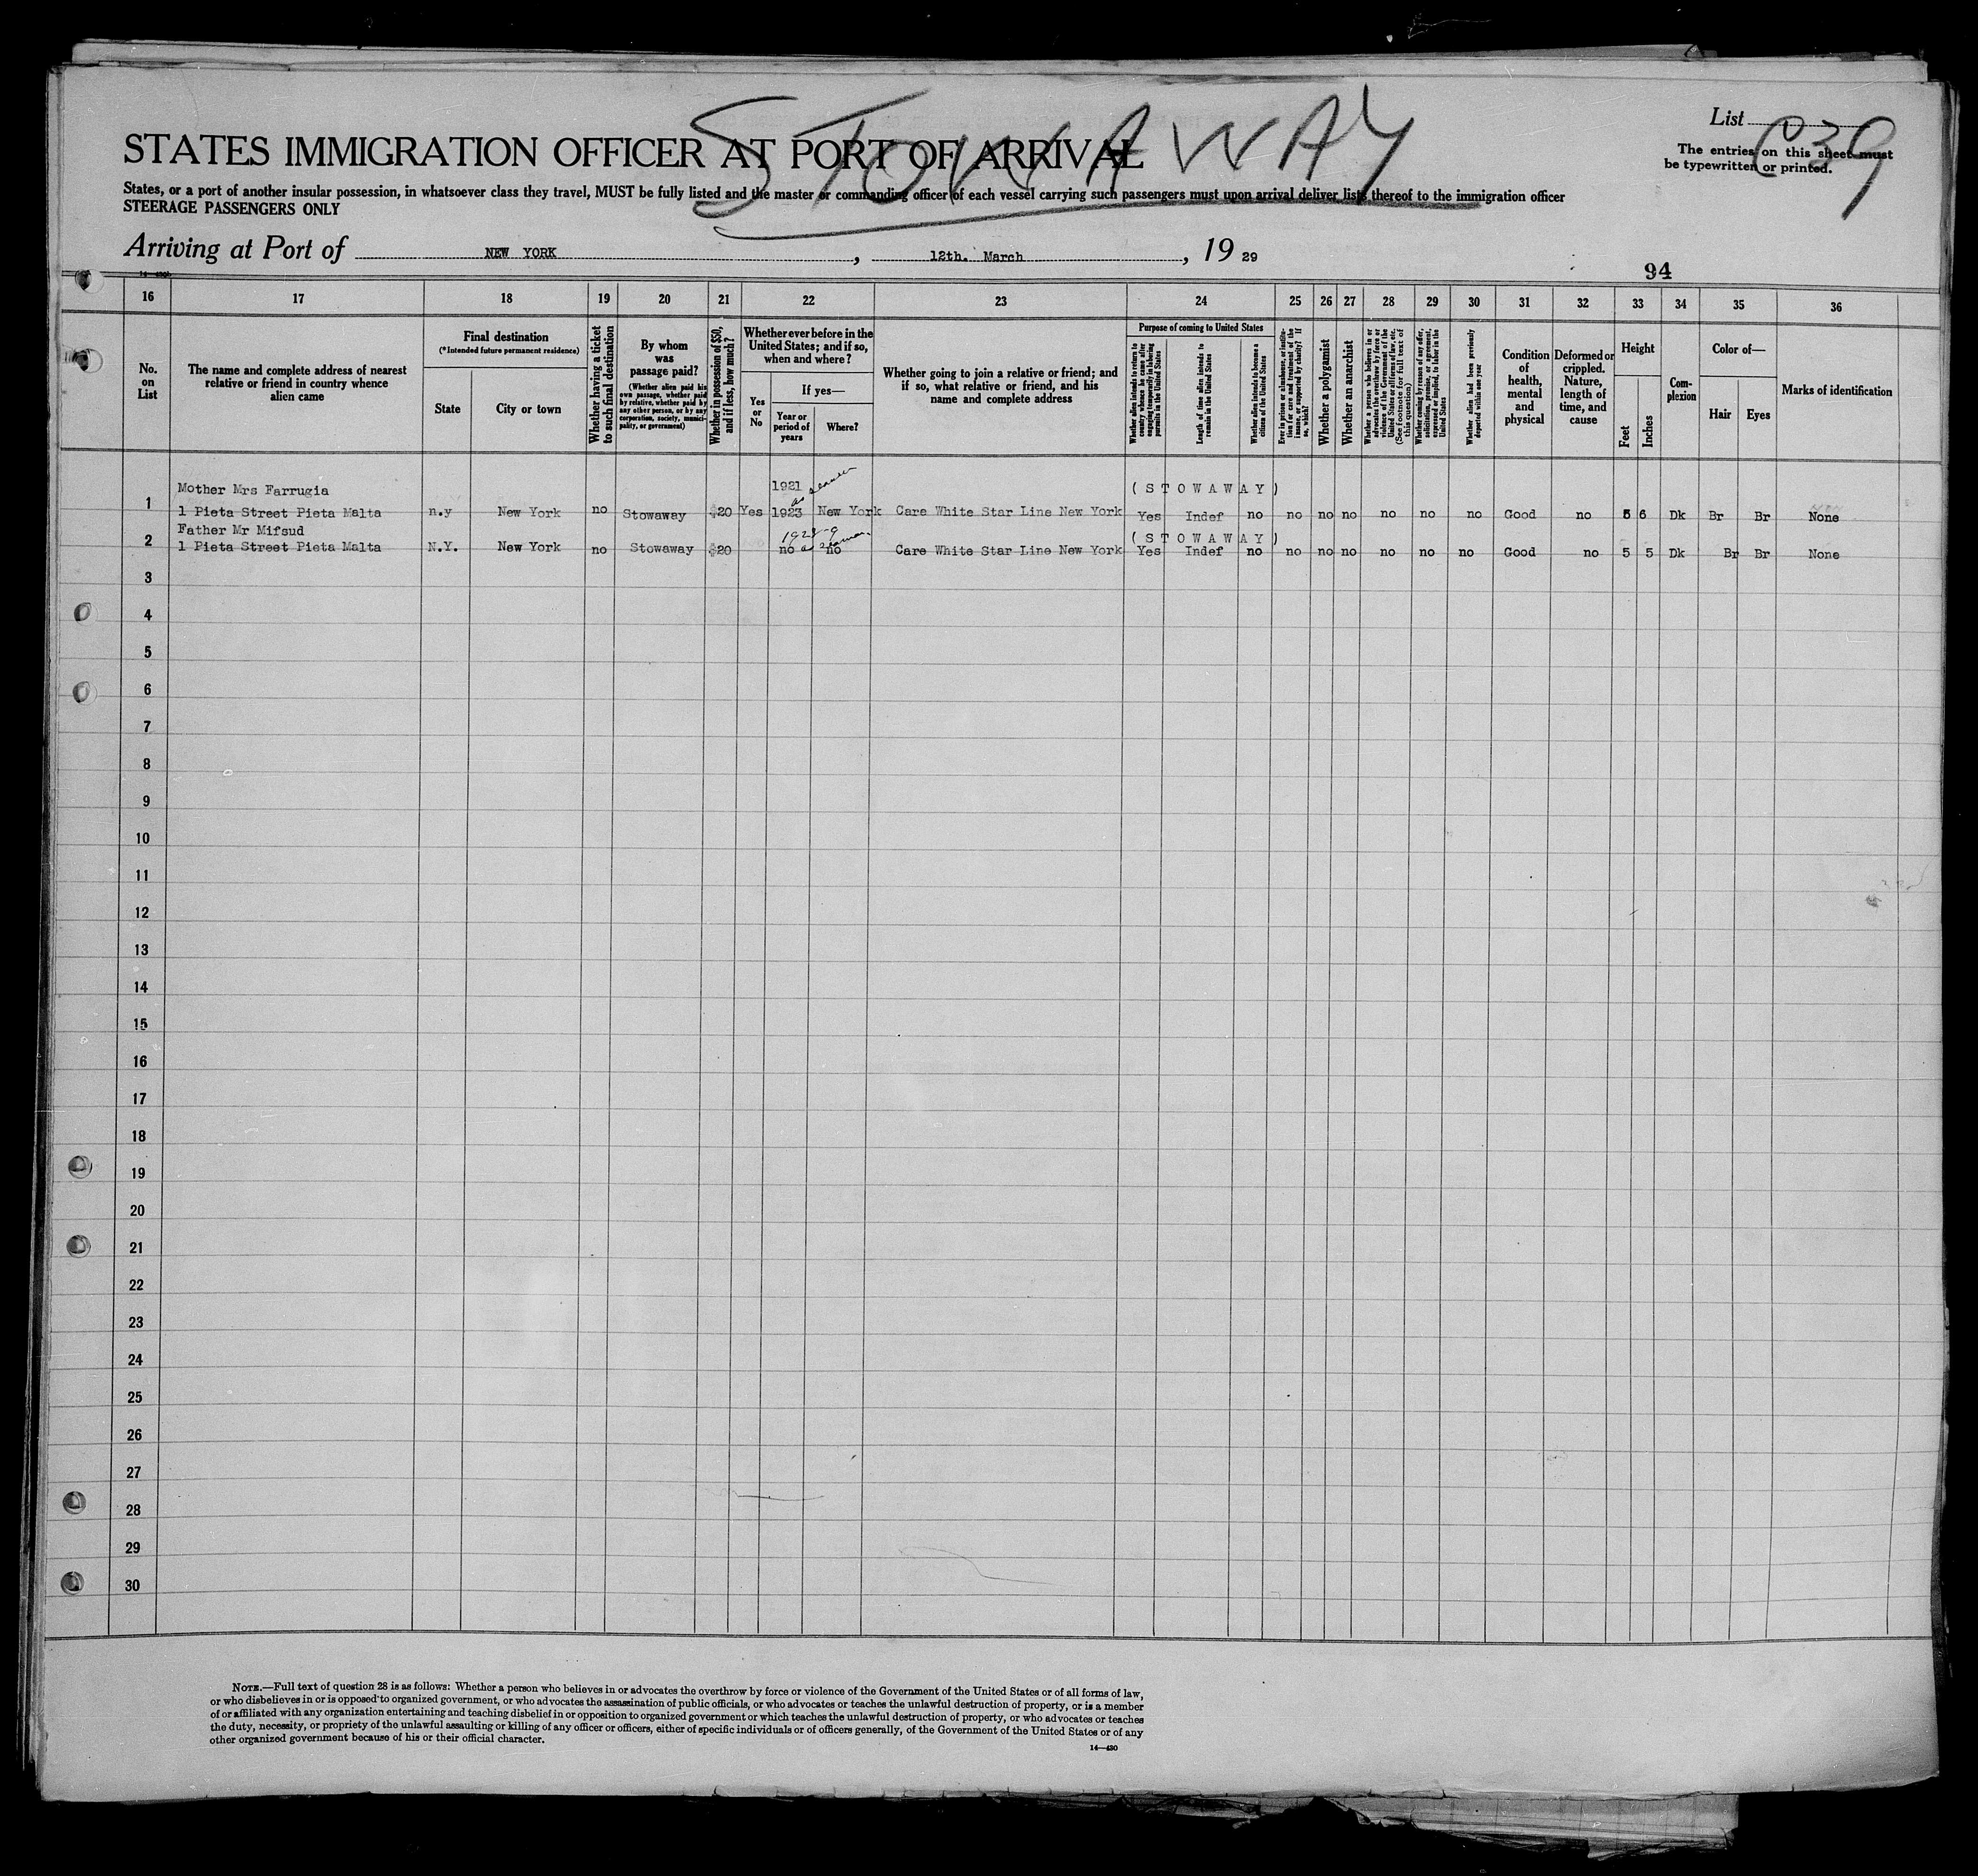 STOWAWAY
List
C39
STATES IMMIGRATION OFFICER AT PORT OF ARRIVAL
The entries on this sheet must
be typewritten or printed.
States, or a port of another insular possession, in whatsoever class they travel, MUST be fully listed and the master or commanding officer of each vessel carrying such passengers must upon arrival deliver lists thereof to the immigration officer
STEERAGE PASSENGERS ONLY
Arriving at Port of NEW YORK, 12th. March, 19 29
94
16 17 18 19 20 21 22 23 24 25 26 27 28 29 30 31 32 33 34 35 36
No. on List
The name and complete address of nearest
relative or friend in country whence
alien came
Final destination
(*Intended future permanent residence)
State
City or town
Whether having a ticket
to such final destination
By whom
was
passage paid?
(Whether alien paid his
own passage, whether paid
by relative, whether paid by
any other person, or by any
corporation, society, munici-
pality, or government)
Whether in possession of $50,
and if less, how much?
Whether ever before in the
United States; and if so,
when and where?
Yes
or
No
If yes—
Year or
period of
years
Where?
Whether going to join a relative or friend; and
if so, what relative or friend, and his
name and complete address
Purpose of coming to United States
Whether alien intends to return to
country whence he came after
engaging temporarily in laboring
pursuits in the United States
Length of time alien intends to
remain in the United States
Whether alien intends to become a
citizen of the United States
Ever in prison or almshouse, or institu-
tion for care and treatment of the
insane, or supported by charity? If
so, which?
Whether a polygamist
Whether an anarchist
Whether a person who believes in or
advocates the overthrow by force or
violence of the Government of the
United States or all forms of law, etc.
(See footnote for full text of
this question)
Whether coming by reason of any offer,
solicitation, promise, or agreement,
expressed or implied, to labor in the
United States
Whether alien had been previously
deported within one year
Condition
of
health,
mental
and
physical
Deformed or
crippled.
Nature,
length of
time, and
cause
Height
Feet
Inches
Com-
plexion
Color of—
Hair
Eyes
Marks of identification
Mother Mrs Farrugia 1921 as seaman (STOWAWAY)
1 1 Pieta Street Pieta Malta n.y New York no Stowaway $20 Yes 1923 New York Care White Star Line New York Yes Indef no no no no no no no Good no 5 6 Dk Br Br None
Father Mr Mifsud 1928-9 a seaman (STOWAWAY)
2 1 Pieta Street Pieta Malta N.Y. New York no Stowaway $20 no no Care White Star Line New York Yes Indef no no no no no no no Good no 5 5 Dk Br Br None
3
4
5
6
7
8
9
10
11
12
13
14
15
16
17
18
19
20
21
22
23
24
25
26
27
28
29
30
NOTE.—Full text of question 28 is as follows: Whether a person who believes in or advocates the overthrow by force or violence of the Government of the United States or of all forms of law,
or who disbelieves in or is opposed to organized government, or who advocates the assassination of public officials, or who advocates or teaches the unlawful destruction of property, or is a member
of or affiliated with any organization entertaining and teaching disbelief in or opposition to organized government or which teaches the unlawful destruction of property, or who advocates or teaches
the duty, necessity, or propriety of the unlawful assaulting or killing of any officer or officers, either of specific individuals or of officers generally, of the Government of the United States or of any
other organized government because of his or their official character.
14—430